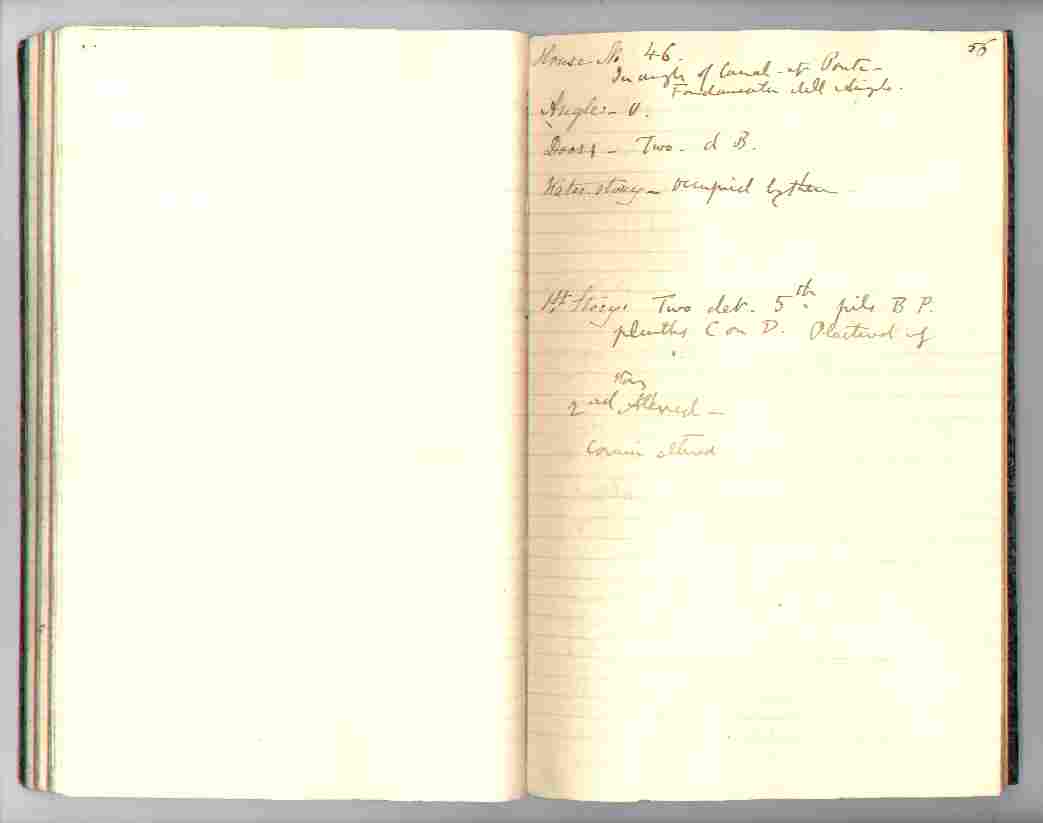 56
House No 46.
In angle of Canal - at Ponte -
Fondamenta dell Angelo.
Angles - v.
Doors - Two - d B.
Water story - occupied by them
1st Story. Two det. 5th pils B P.
plinths C on D. Plastered
story
2nd Altered -
Cornice altered